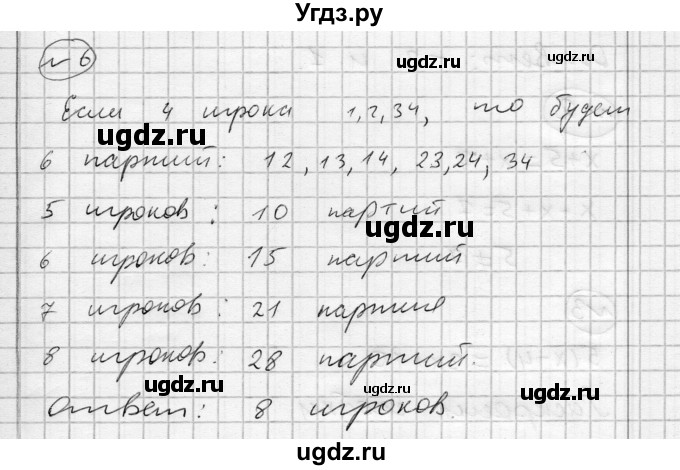 Угдз.ру
№ 6
Если 4 игрока 1,2,34, то будет
6 партий: 12, 13, 14, 23, 24, 34
5 игроков: 10 партий
6 игроков: 15 партий
7 игроков: 21 партия
8 игроков: 28 партий.
Ответ: 8 игроков.
ugdz.ru
ugdz.ru
ugdz.ru
ugdz.ru
ugdz.ru
ugdz.ru
ugdz.ru
ugdz.ru
ugdz.ru